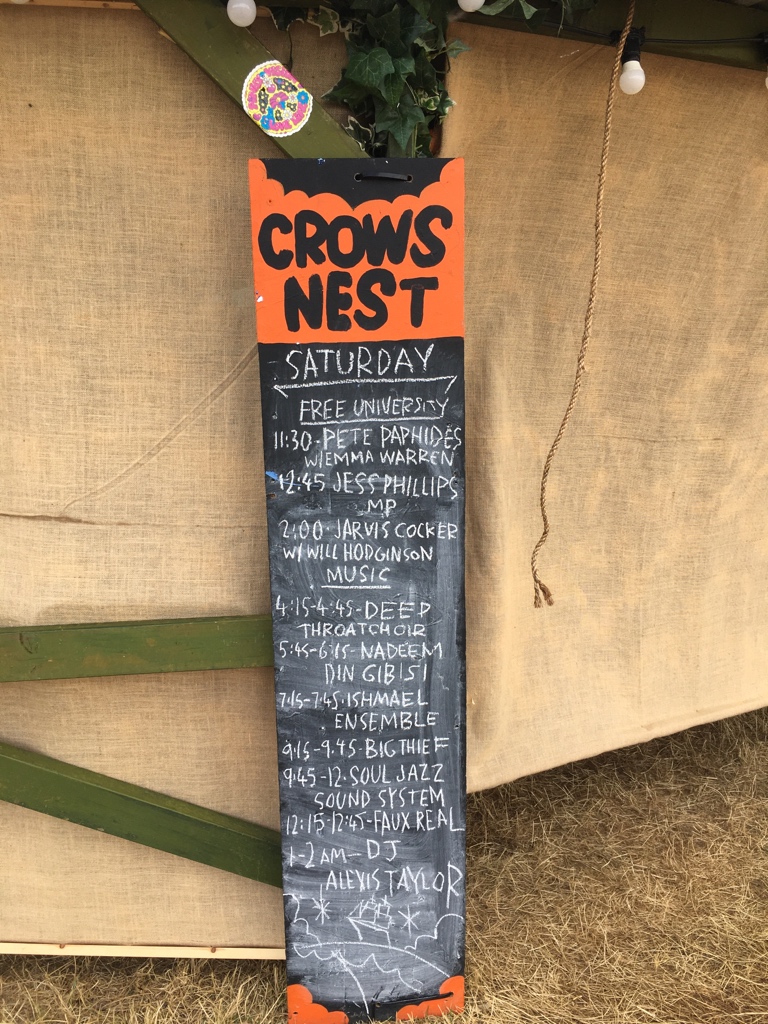 CROWS
NEST
SATURDAY
FREE UNIVERSITY
11:30-PETE PAPHIDES
W/EMMA WARREN
12:45 JESS PHILLIPS
MP
2:00-JARVIS COCKER
W/ WILL HODGINSON
MUSIC
4:15-4:45-DEEP
THROATCHOIR
5:45-6:15-NADEEM
DIN GIBISI
7:15-7:45.ISHMAEL
ENSEMBLE
9:15-9.45-BIG THIEF
9:45-12.SOUL JAZZ
SOUND SYSTEM
12:15-12:45-FAUX REAL
1-2 AM-DJ
ALEXIS TAYLOR